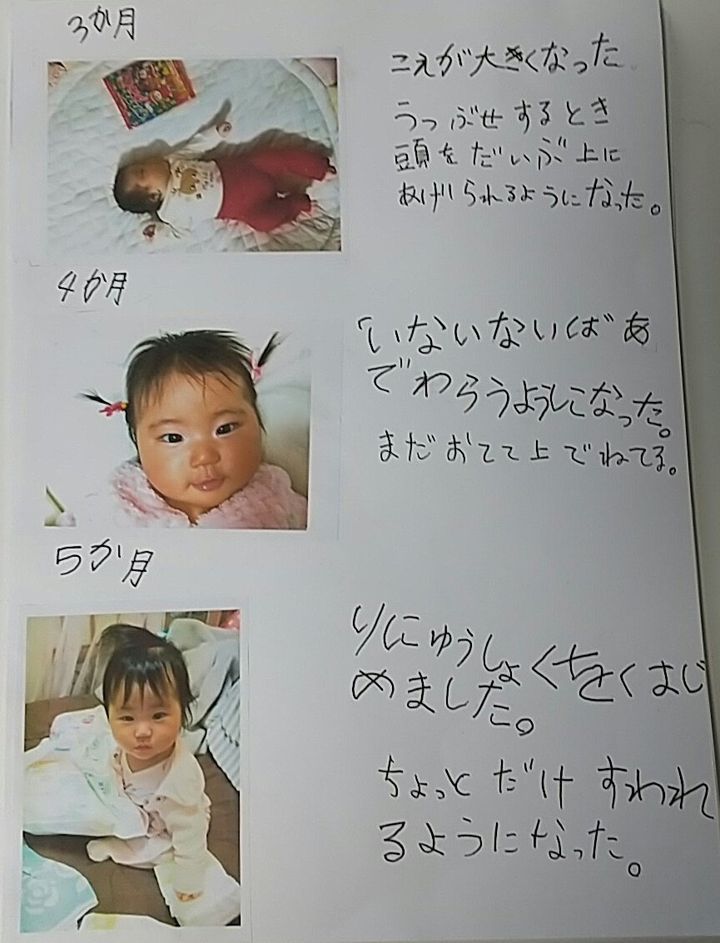 3か月
こえが大きくなった
うつぶせするとき
頭をだいぶ上に
あげられるようになった。
4か月
いないいないばあ
でわらうようになった。
まだおてて上でねてる。
5か月
りにゅうしょくをはじ
めました。
ちょっとだけすわれ
るようになった。